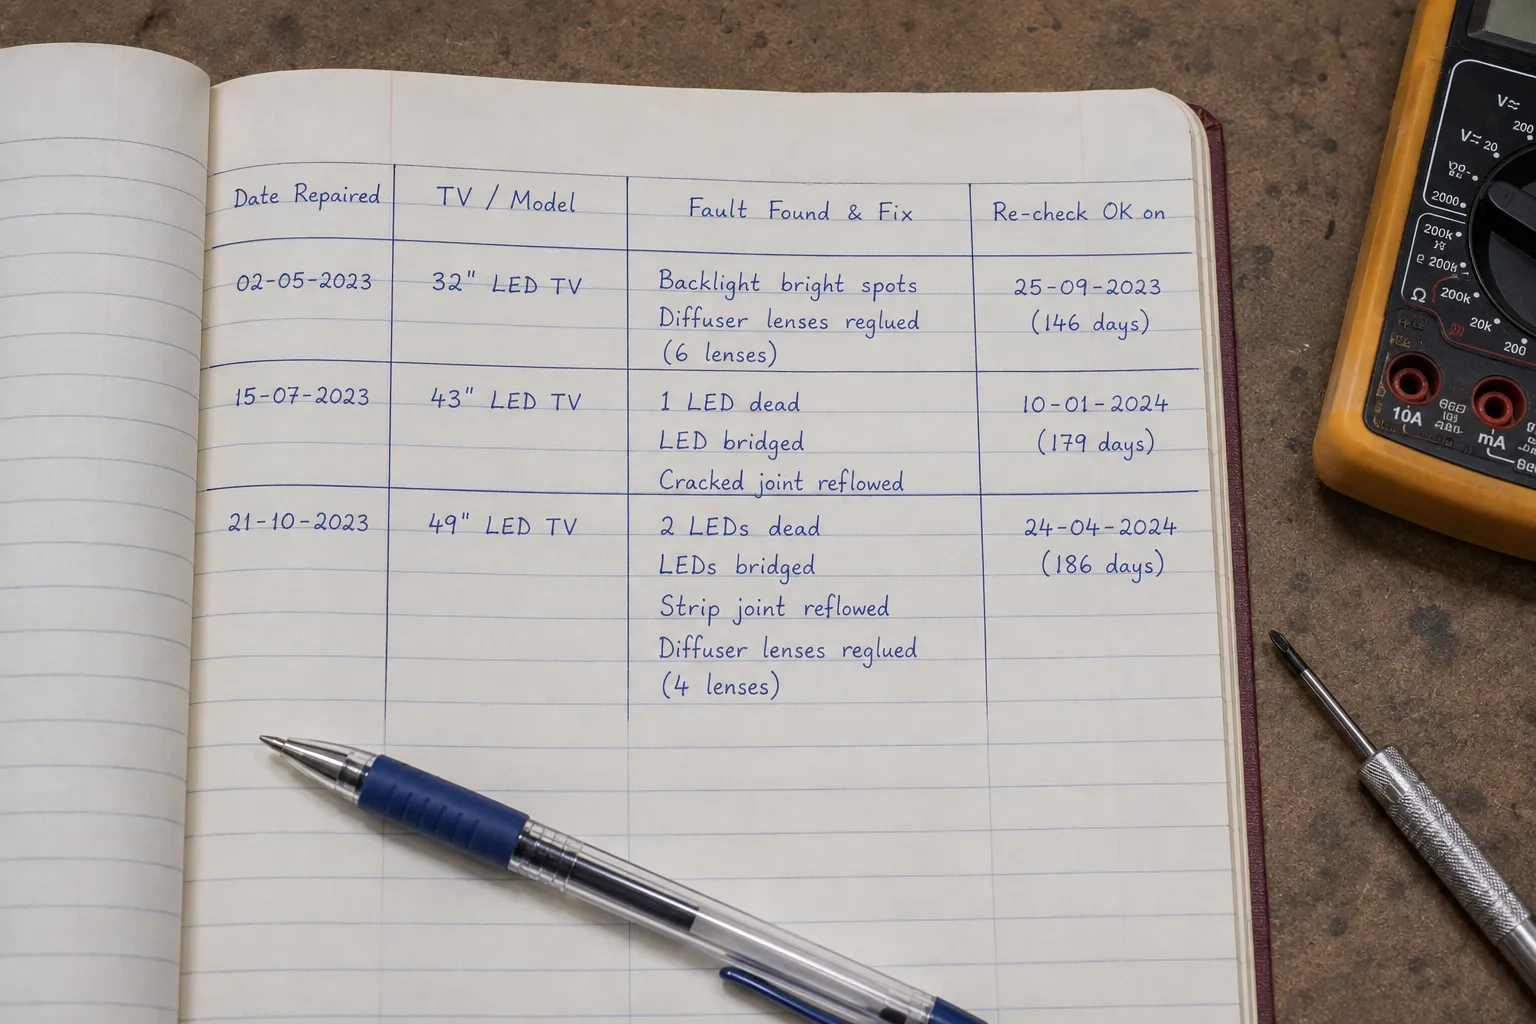 Date Repaired
TV / Model
Fault Found & Fix
Re-check OK on
02-05-2023
32" LED TV
Backlight bright spots
Diffuser lenses reglued
(6 lenses)
25-09-2023
(146 days)
15-07-2023
43" LED TV
1 LED dead
LED bridged
Cracked joint reflowed
10-01-2024
(179 days)
21-10-2023
49" LED TV
2 LEDs dead
LEDs bridged
Strip joint reflowed
Diffuser lenses reglued
(4 lenses)
24-04-2024
(186 days)
200
20
2000
200k
200k
20k
200
10A
mA